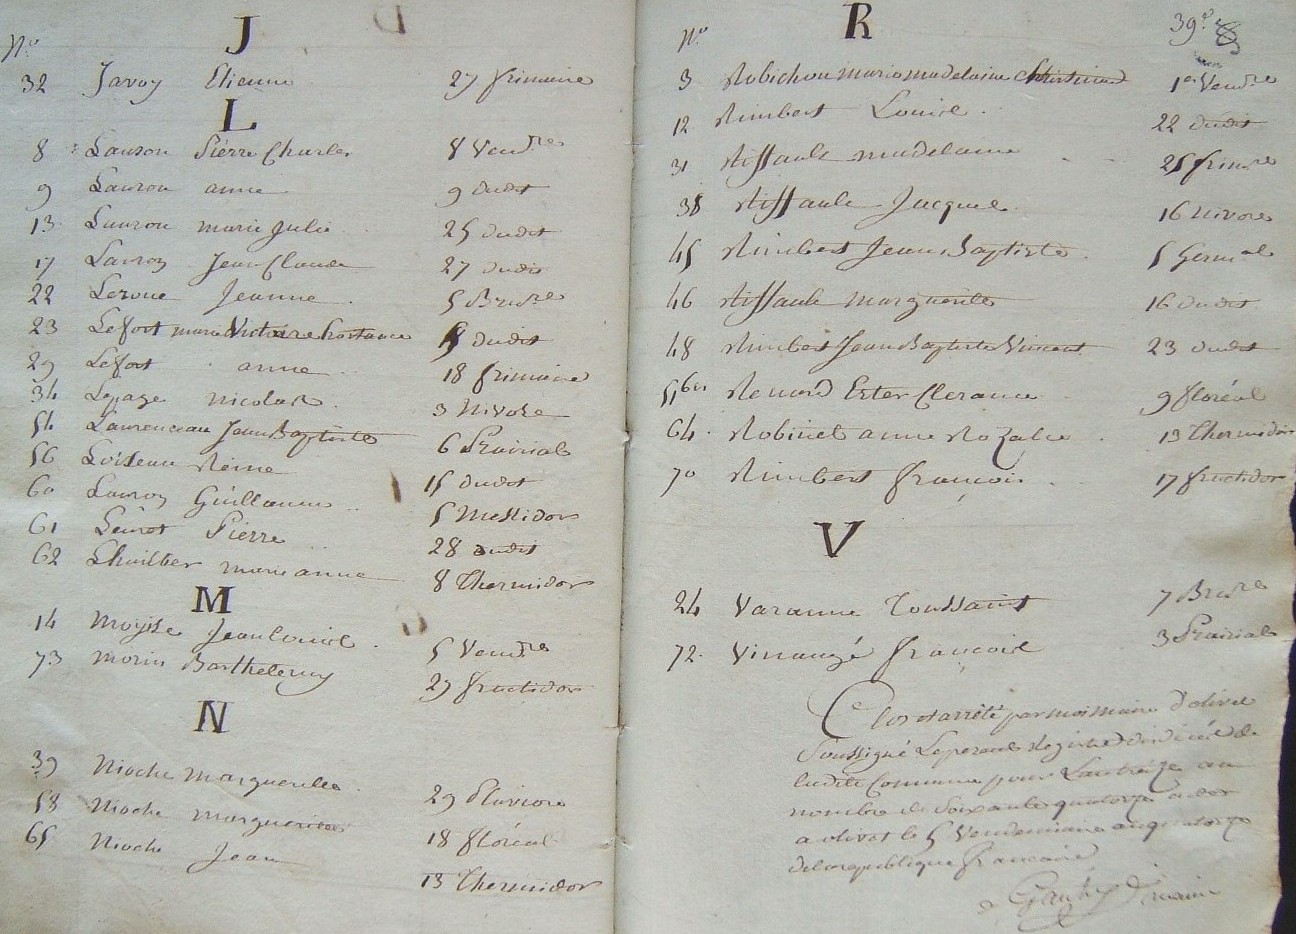 J
N.o
32 Javoy Etienne 27 frimaire
L
8 Lauron Pierre Charles 8 Vendre
9 Lauron anne 9 dudit
13 Lauron marie Julie 25 dudit
17 Lauron Jean Claude 27 dudit
22 Leroue Jeanne 5 Brure
23 Lefort marie Victoire hortance dudit
29 Lefort anne 18 frimaire
34 Lepage nicolas 3 Nivose
54 Laurenceau Jean Baptiste 6 Prairial
56 Loiseau Reine 15 dudit
60 Lauron Guillaume 5 Messidor
61 Pierre 28 dudit
62 Lhuillier marie anne 8 Thermidor
M
14 Moyse Jean Louis 5 Vendre
73 morin Barthelemy 27 fructidor
N
39 Nioche marguerite 29 Pluviose
58 Nioche marguerite 18 floréal
65 Nioche Jean 13 Thermidor
R
N.o 39.e
3 Robichou marie madelaine 1er Vendre
12 Rimbert Louise 22 dudit
31 Riffault madelaine 25 frimre
38 Riffault Jacques 16 nivose
45 Rimbert Jean Baptiste 5 Germal
46 Riffault marguerite 16 dudit
48 Rimbert Jean Baptiste Vincent 23 dudit
51 bis Renard Ester Clerance 9 floréal
64 Robinet anne Rozalie 13 Thermidor
70 Rimbert francois 17 fructidor
V
24 Varanne Toussaint 7 Brure
72 Vinauzé francois 3 Prairial
Clos et arrêté par moi maire d'olivet
Soussigné Le présent Registre de décès de
ladite Commune pour L'an treize au
nombre de Soixante quatorze actes
a olivet le 5 Vendemiaire an quatorze
de la republique francaise
maire